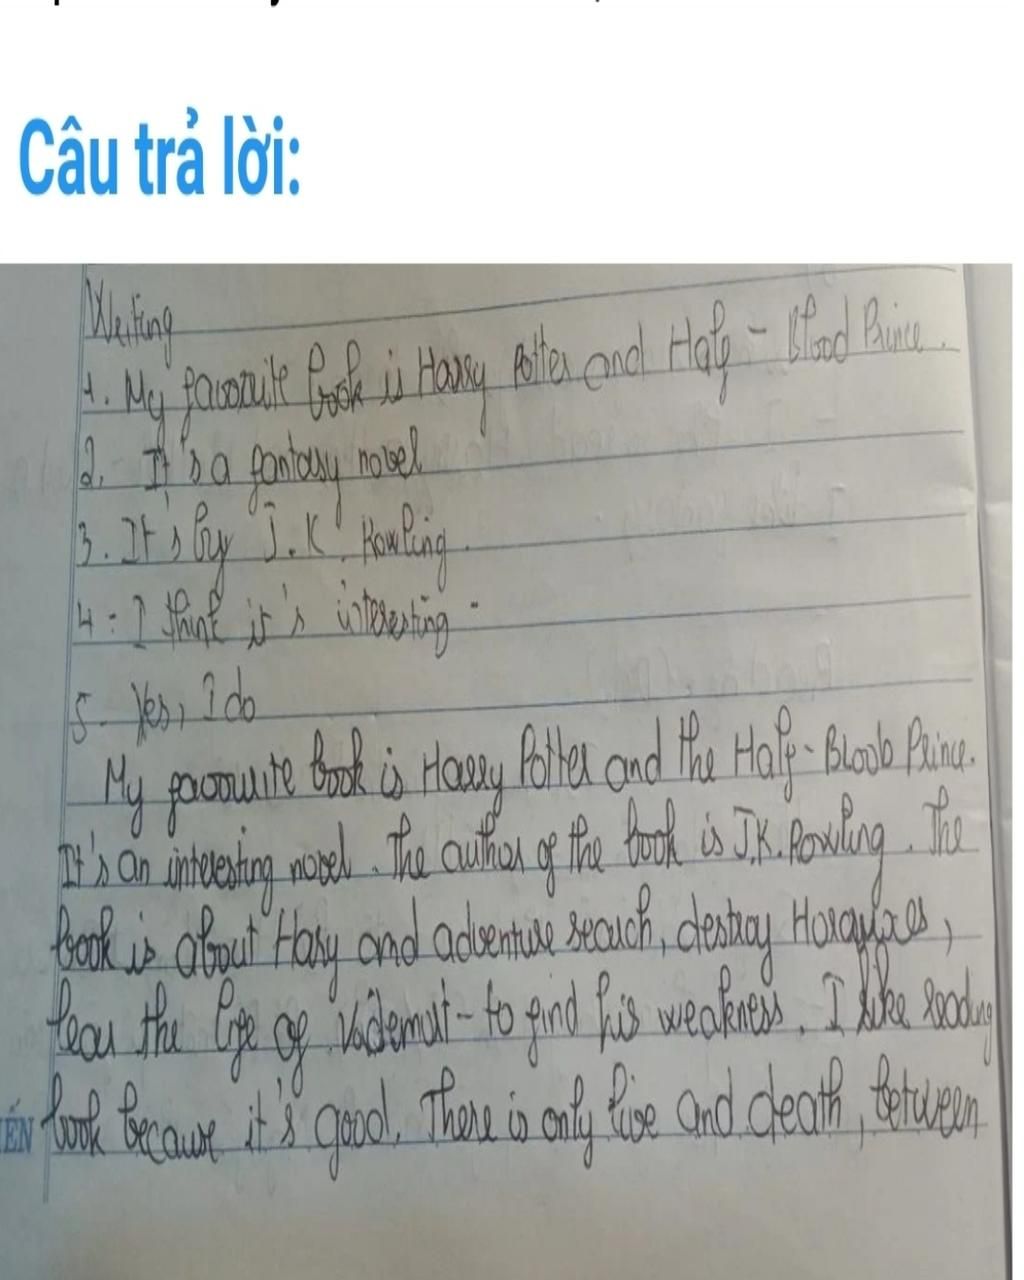 Câu trả lời:
Writing
1. My favorite book is Harry Potter and Half - Blood Prince.
2. It's a fantasy novel
3. It's by J.K. Rowling.
4. I think it's interesting.
5. Yes, I do
My favourite book is Harry Potter and the Half-Bloob Prince.
It's an interesting novel. The author of the book is J.K. Rowling. The
book is about Hary and adventure search, destroy
the life of to find his weakness. I like reading
ẾN book because it's good. There is only live and death, between